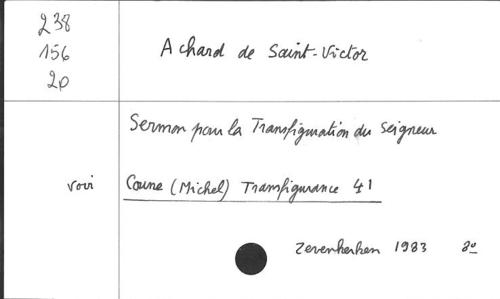 238
156
20
Achard de Saint-Victor
Sermon pour la Transfiguration du Seigneur
voir Coune (Michel) Transfigurance 41
Zevenkerken 1983 8º